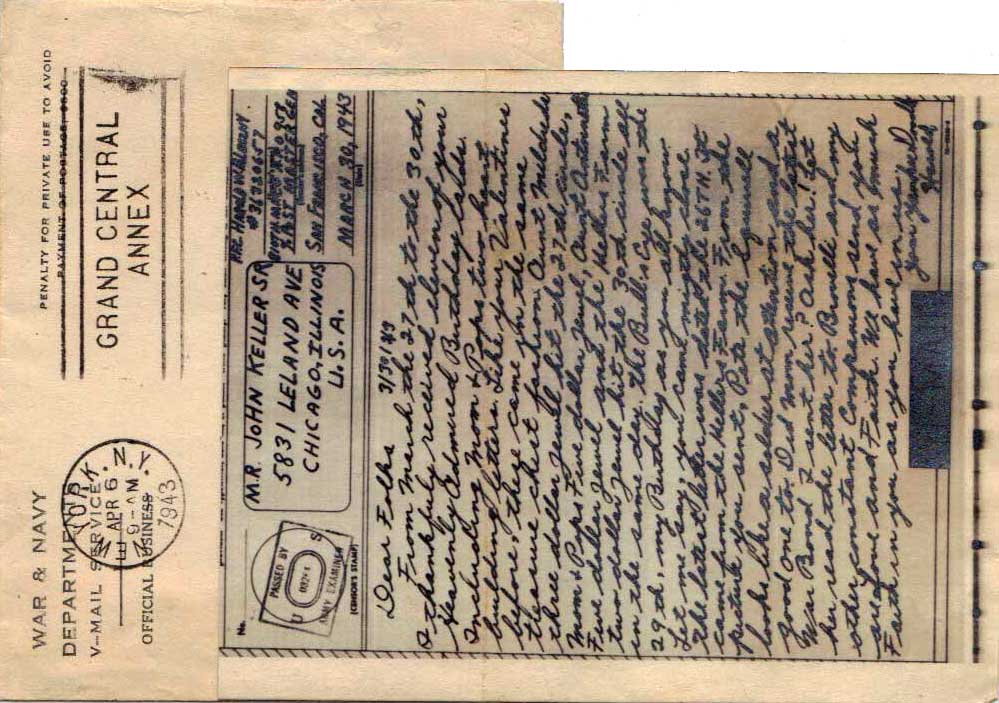 WAR & NAVY
DEPARTMENTS
V-MAIL SERVICE
OFFICIAL BUSINESS
NEW YORK, N.Y.
APR 6
9-AM
1943
PENALTY FOR PRIVATE USE TO AVOID
PAYMENT OF POSTAGE, $300
GRAND CENTRAL
ANNEX
No.
PASSED BY
U S
ARMY EXAMINER
(CENSOR'S STAMP)
MR. JOHN KELLER SR
5831 LELAND AVE
CHICAGO, ILLINOIS
U.S.A.
PVT.
958
% POSTMASTER
SAN FRANCISCO, CAL
MARCH 30, 1943
Dear Folks 3/30/43
From March the 27th to the 30th,
I thankfully received eleven of your
Heavenly Edmered Birthday letters.
Including Mom & Pops two heart
building letters. Like your Valentines
before they came in the same
treasure chest fashion. Aunt Mildreds
three dollar Jewell hit the 27th inside,
Mom & Pops Five dollar Jewel, Aunt
Five dollar Jewel and the Hellers Fam
two dollar Jewel hit the 30th inside all
in the same day. The Bulls Eye was the
29th, my Birthday as you all know.
Let me say, you cant miss. The
The latest letter was dated the 26TH. It
came from the Hellers Fam. From the
picture you sent, Pete the Lyall
looks like a soldier at attention and a
Good one to. Did Mom receive the latest
War Bond I sent her? Ask her. I let
her read the letter to Brulle and my
other constant Companions send you
all Love and Faith. We have as much
Faith in you as you have in us.